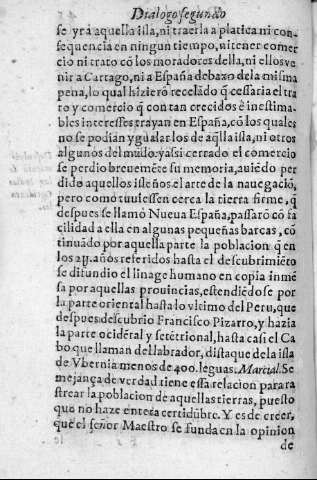 Dialogo segundo
se yrà aquella isla, ni traerla a platica ni con
sequencia en ningun tiempo, ni tener comer
cio ni trato cō los moradores della, ni ellos ve
nir a Cartago, ni a España debaxo de la misma
pena, lo qual hizierō recelādo q̃ cessaria el tra
to y comercio q̃ con tan crecidos è inestima-
bles interesses trayan en España, cō los quales
no se podian ygualar los de aq̃lla isla, ni otros
algunos del mūdo: y assi cerrado el comercio
se perdio breuemēte su memoria, auiēdo per
dido aquellos isleños el arte de la nauegaciō,
pero como tuuiessen cerca la tierra firme, q̃
despues se llamò Nueua España, passarō cō fa
cilidad a ella en algunas pequeñas barcas, cō
tinuādo por aquella parte la poblacion q̃ en
los años referidos hasta el descubrimiēto
se difundio el linage humano en copia inmē
sa por aquellas prouincias, estendiēdose por
la parte oriental hasta lo vltimo del Peru, que
despues descubrio Francisco Pizarro, y hazia
la parte occidētal y setētrional, hasta casi el Ca
bo que llaman del labrador, distaque de la isla
de Vbernia menos de 400. leguas. Marcial. Se
mejança de verdad tiene essa relacion para ra
strear la poblacion de aquellas tierras, puesto
que no haze entera certidūbre. Y es de creer,
que el señor Maestro se funda en la opinion
de